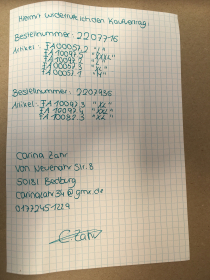 Hiermit widerrufe ich den Kaufvertrag:
Bestellnummer: 2207716
Artikel: FA00057.2 "L"
FA10097.5 "XXL"
FA10097.1 "L"
FA00057.3 "XL"
FA00057.1 "M"
Bestellnummer: 2207936
Artikel: FA10097.3 "XL"
FA10097.4 "XXL"
FA10087.3 "XL"
Carina Zahr
Von Neuenahr Str. 8
50181 Bedburg
carinazahr34@gmx.de
01772451229